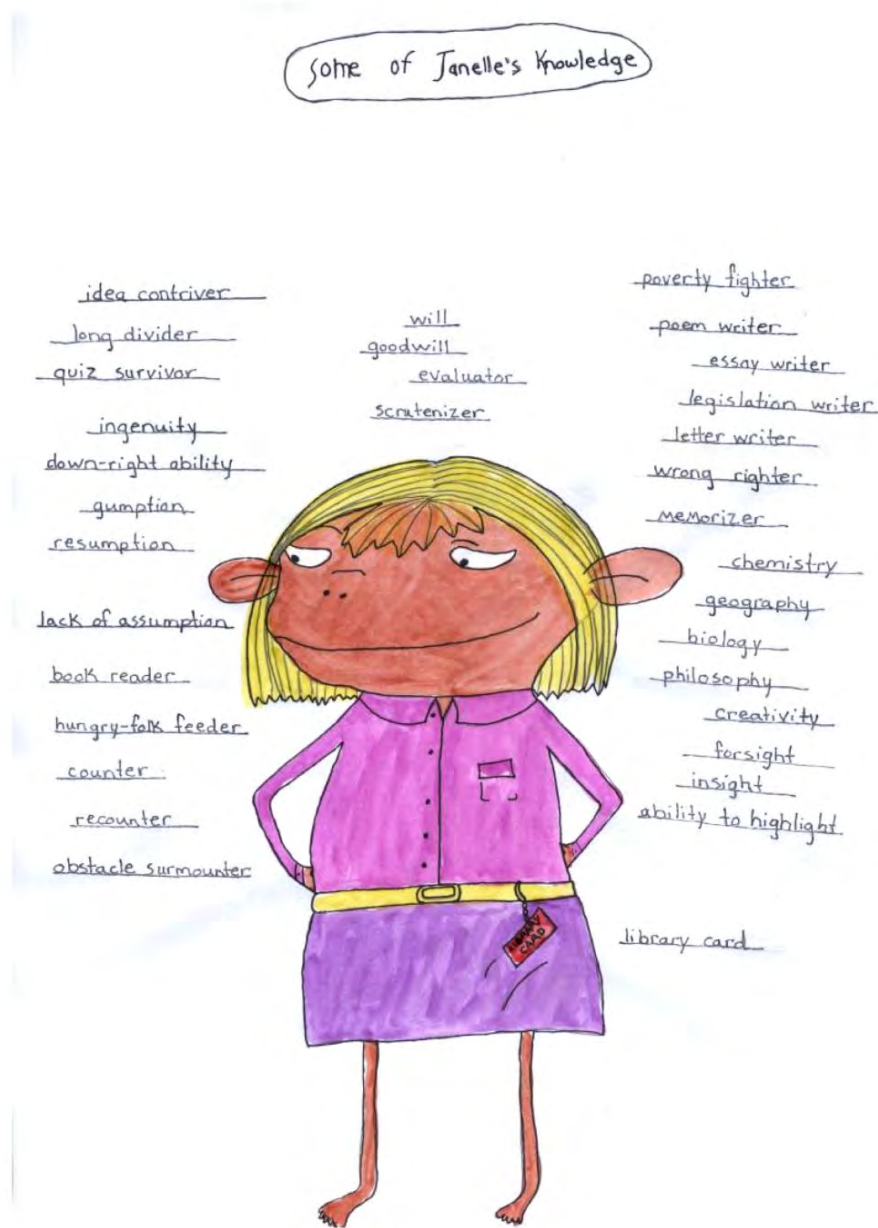 Some of Janelle's Knowledge
idea contriver
long divider
quiz survivor
ingenuity
down-right ability
gumption
resumption
lack of assumption
book reader
hungry-folk feeder
counter
recounter
obstacle surmounter
will
goodwill
evaluator
scrutenizer
poverty fighter
poem writer
essay writer
legislation writer
letter writer
wrong righter
memorizer
chemistry
geography
biology
philosophy
creativity
forsight
insight
ability to highlight
library card
LIBRARY
CARD